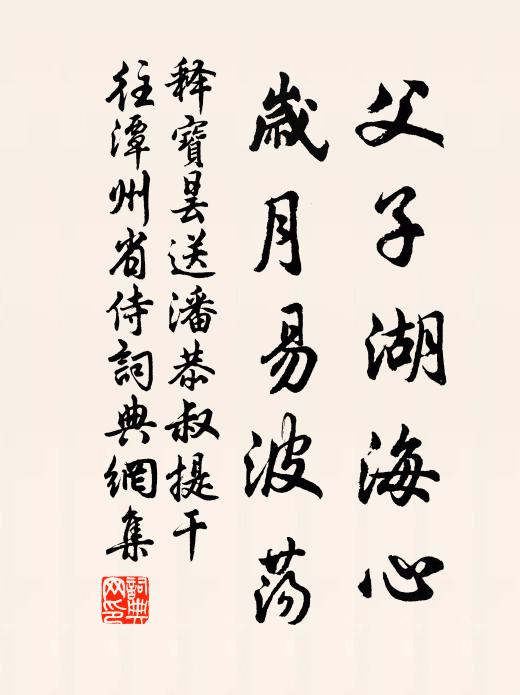 父子湖海心
歲月易波荡
释寶昙送潘恭叔提干
往潭州省侍詞典網集
詞典網印